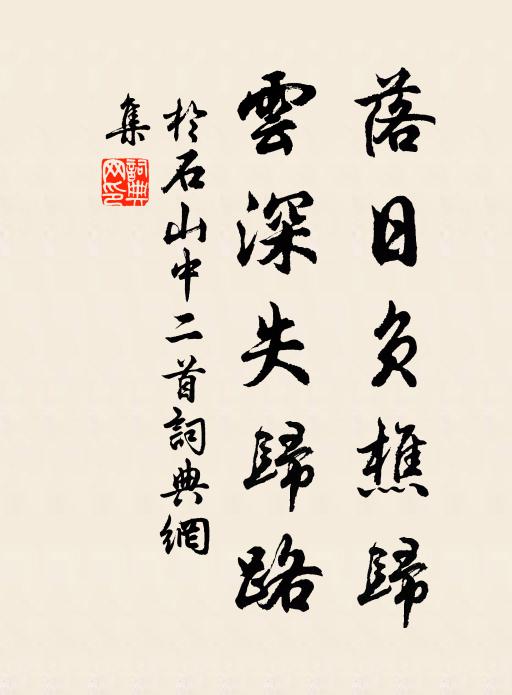 落日負樵歸
雲深失歸路
於石山中二首詞典網
集
詞典
網印